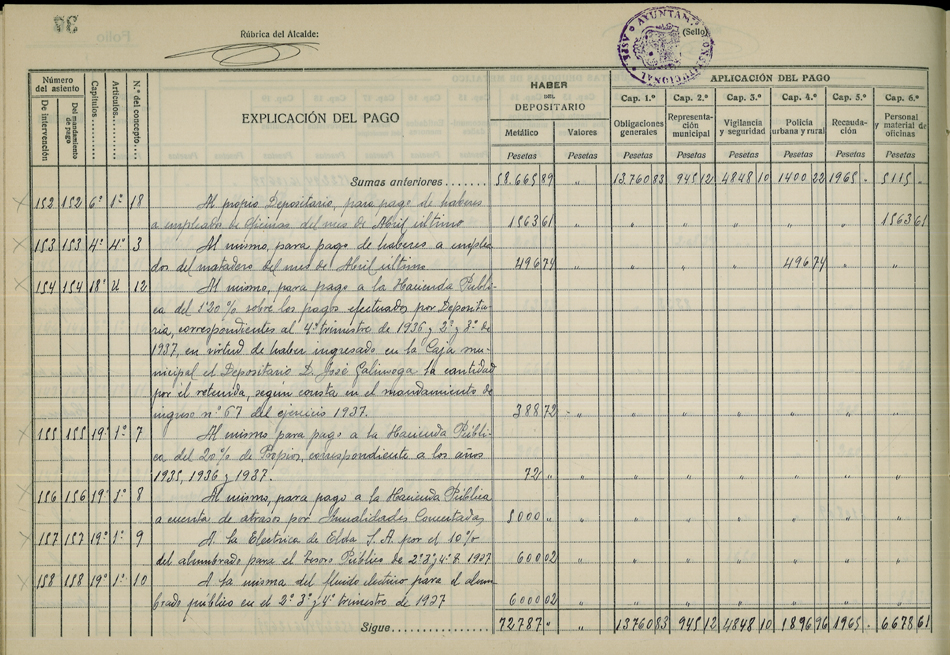 37
Folio
Rúbrica del Alcalde:
(Sello)
AYUNTAM. CONSTITUCIONAL ASPE
Número del asiento
De intervención
Del mandamiento de pago
Capítulos
Artículos
N.º del concepto
EXPLICACIÓN DEL PAGO
HABER DEL DEPOSITARIO
Metálico Valores
Pesetas Pesetas
APLICACIÓN DEL PAGO
Cap. 1.º Cap. 2.º Cap. 3.º Cap. 4.º Cap. 5.º Cap. 6.º
Obligaciones generales Representación municipal Vigilancia y seguridad Policía urbana y rural Recaudación Personal y material de oficinas
Pesetas Pesetas Pesetas Pesetas Pesetas Pesetas
Sumas anteriores....... 58.665 89 " 13.760 83 945 12 4848 10 1400 22 1965 - 5115 -
152 152 6º 1º 18 Al propio Depositario, para pago de haberes
a empleados de Oficinas del mes de Abril último 1563 61 " " " " " " 1563 61
153 153 4º 4º 3 Al mismo, para pago de haberes a emplea
dos del matadero del mes de Abril último 496 74 " " " " 496 74 " "
154 154 18º U 12 Al mismo, para pago a la Hacienda Públi-
ca del 1'20% sobre los pagos efectuados por Deposita-
ría, correspondientes al 4º trimestre de 1936 y 2º y 3º de
1937, en virtud de haber ingresado en la Caja mu-
nicipal el Depositario D. José Galinsoga la cantidad
por él retenida, según consta en el mandamiento de
ingreso nº 67 del ejercicio 1937. 388 72 " " " " " " "
155 155 19º 1º 7 Al mismo para pago a la Hacienda Públi-
ca del 20% de Propios, correspondiente a los años
1935, 1936 y 1937. 72 " " " " " " " "
156 156 19º 1º 8 Al mismo, para pago a la Hacienda Pública
a cuenta de atrasos por Anualidades Concertadas 5000 " " " " " " " "
157 157 19º 1º 9 A la Electrica de Elda S.A. por el 10%
del alumbrado para el Tesoro Público de 2º 3º y 4º t. 1937 600 02 " " " " " " "
158 158 19º 1º 10 A la misma del fluido electrico para el alum
brado público en el 2º 3º y 4º trimestre de 1937 6000 02 " " " " " " "
Sigue................ 72.787 " " 13760 83 945 12 4848 10 1896 96 1965 - 6678 61